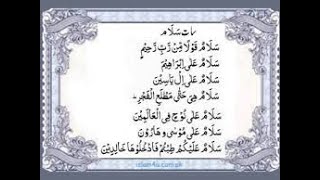 سات سلام
سَلَامٌ قَوْلًا مِنْ رَبٍّ رَحِيْمٍ
سَلَامٌ عَلٰى اِبْرَاهِيْمَ
سَلَامٌ عَلٰى اِلْ يَاسِيْنَ
سَلَامٌ هِىَ حَتّٰى مَطْلَعِ الْفَجْرِ
سَلَامٌ عَلٰى نُوْحٍ فِى الْعَالَمِيْنَ
سَلَامٌ عَلٰى مُوْسٰى وَ هَارُوْنَ
سَلَامٌ عَلَيْكُمْ طِبْتُمْ فَادْخُلُوْهَا خَالِدِيْنَ